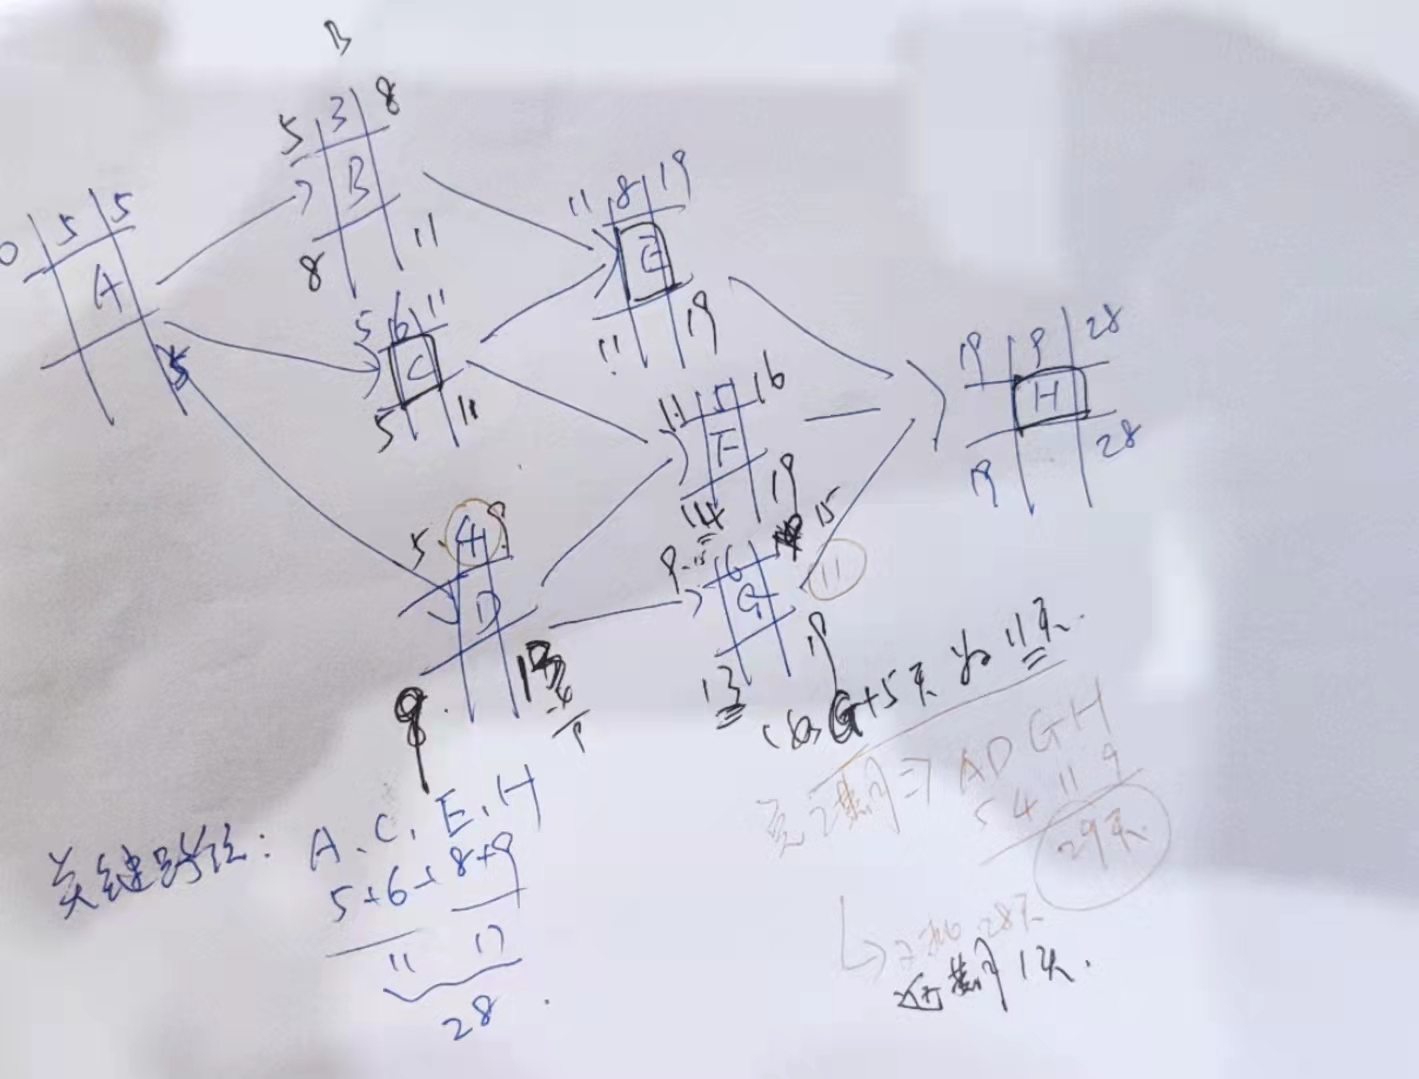 B
5 3 8
B
8 11
0 5 5
A
5
5 6 11
C
5 11
11 8 19
E
11 19
11 5 16
F
14 19
19 9 28
H
19 28
5 4 9
D
9 13
9 6 15
G
13 19
11
G+5天 为11天.
关键路径: A、C、E、H
5+6+8+9
11 17
28
⇒ A D G H
5 4 11 9
29天
28天
延期1天.